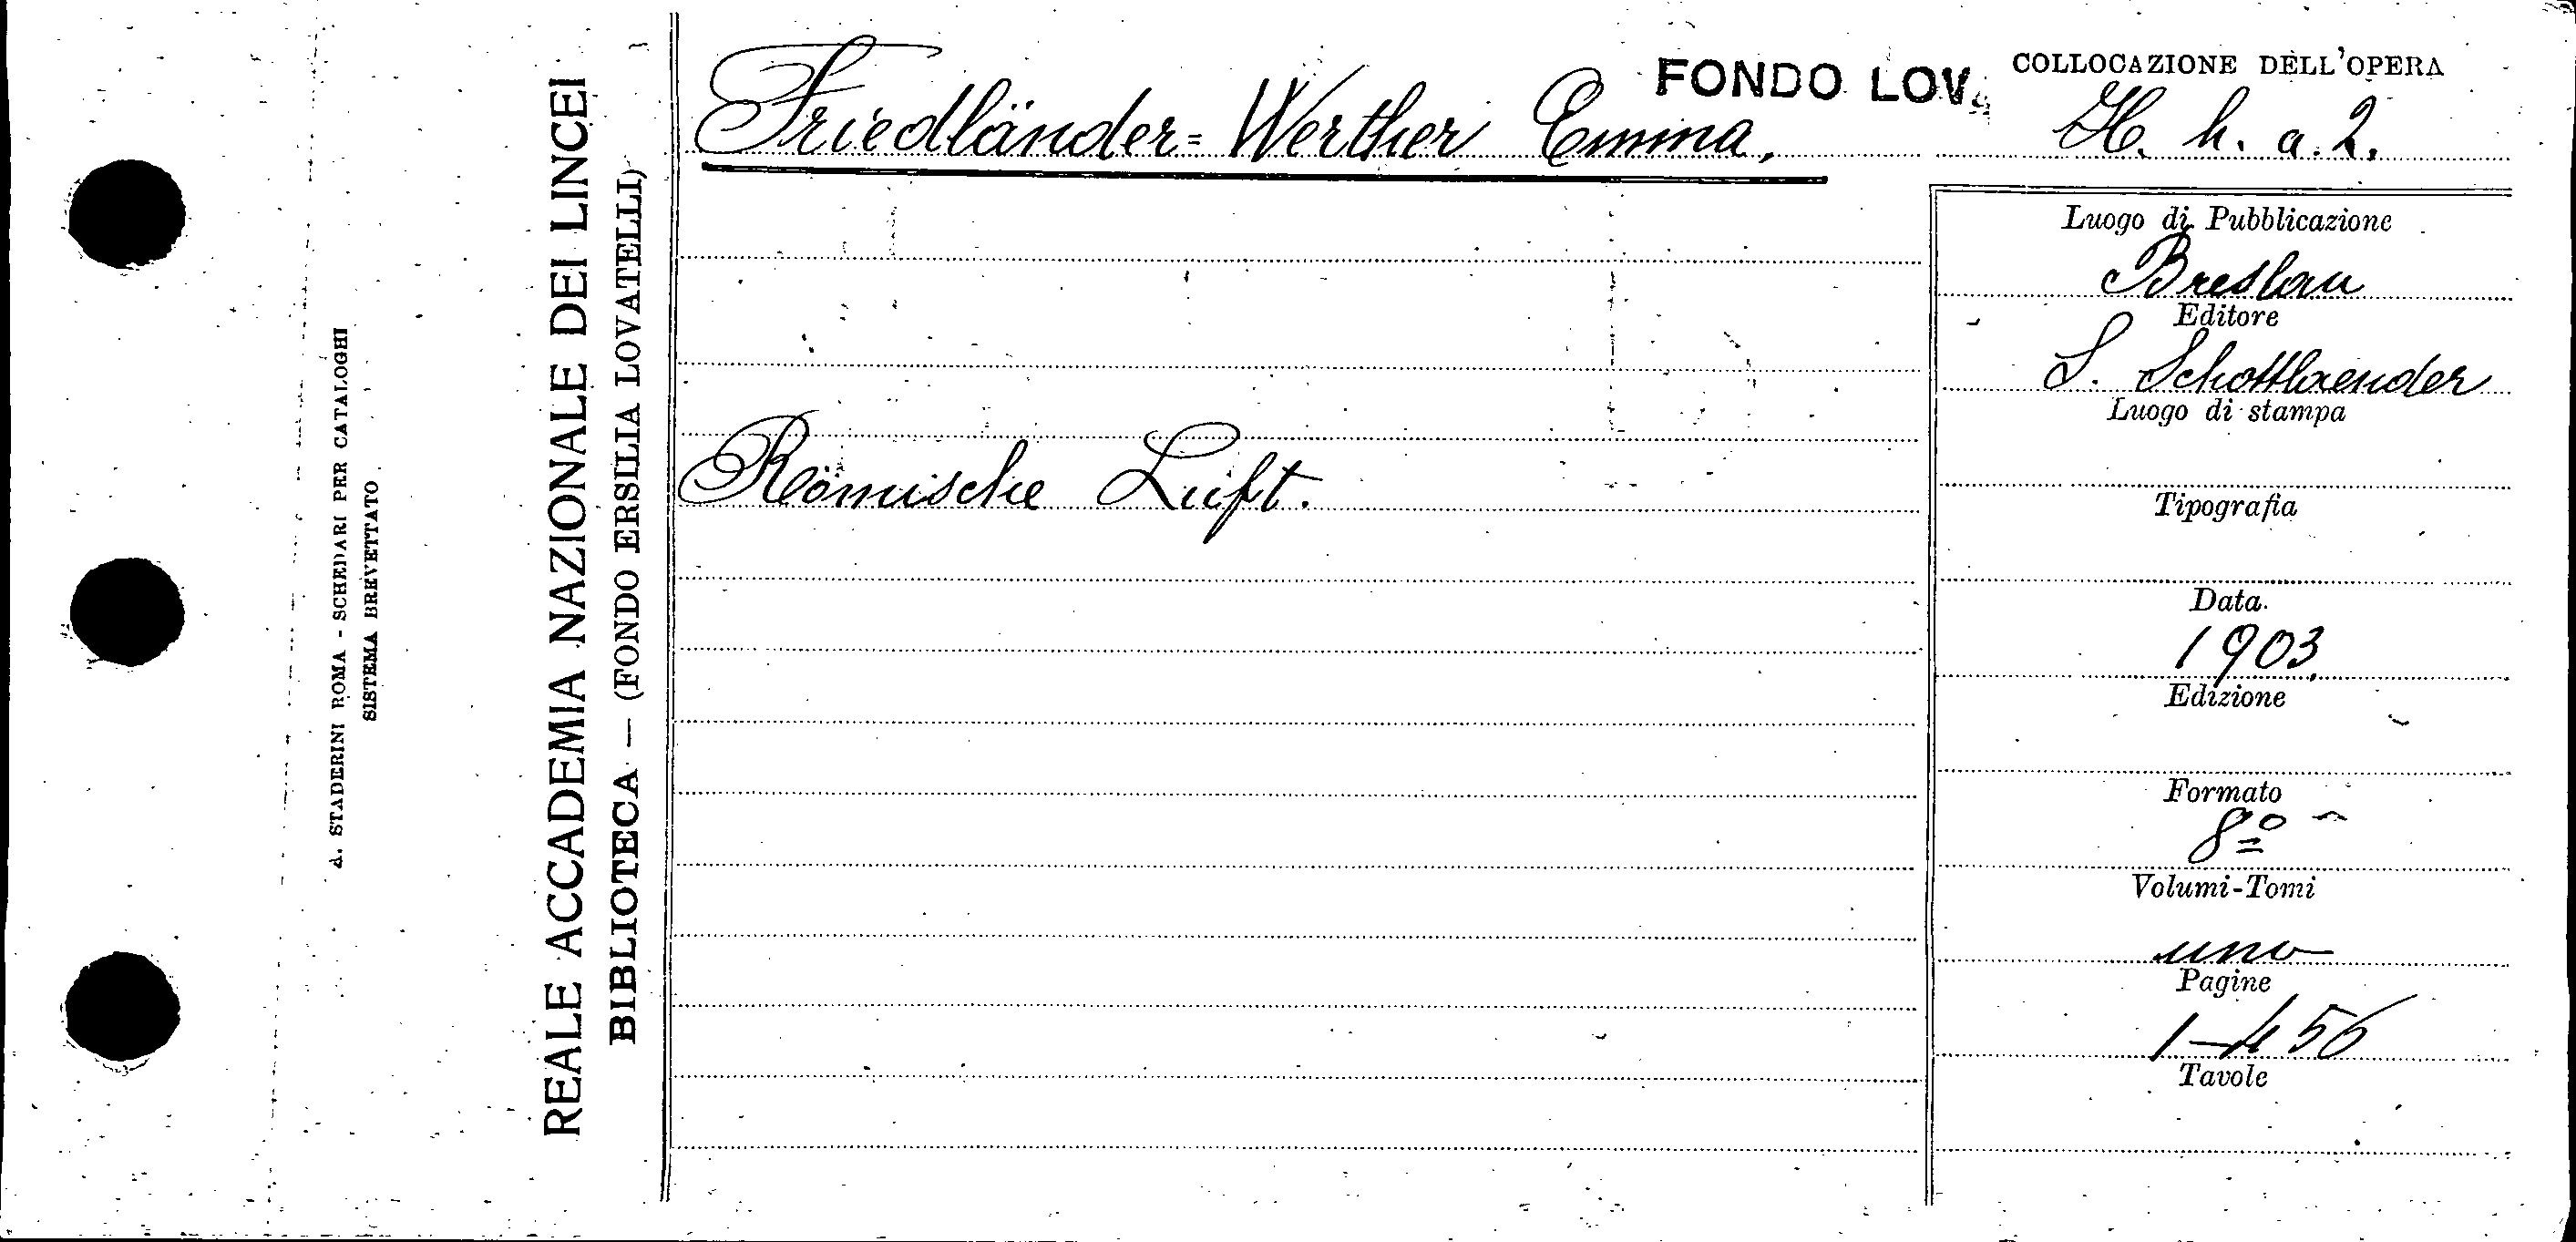 A. STADERINI ROMA - SCHEDARI PER CATALOGHI
SISTEMA BREVETTATO
REALE ACCADEMIA NAZIONALE DEI LINCEI
BIBLIOTECA — (FONDO ERSILIA LOVATELLI)
Friedländer=Werther Emma,
FONDO LOV.
Römische Luft.
COLLOCAZIONE DELL'OPERA
H. h. a. 2.
Luogo di Pubblicazione
Breslau
Editore
S. Schottlaender
Luogo di stampa
Tipografia
Data
1903
Edizione
Formato
8º
Volumi-Tomi
uno
Pagine
1-456
Tavole